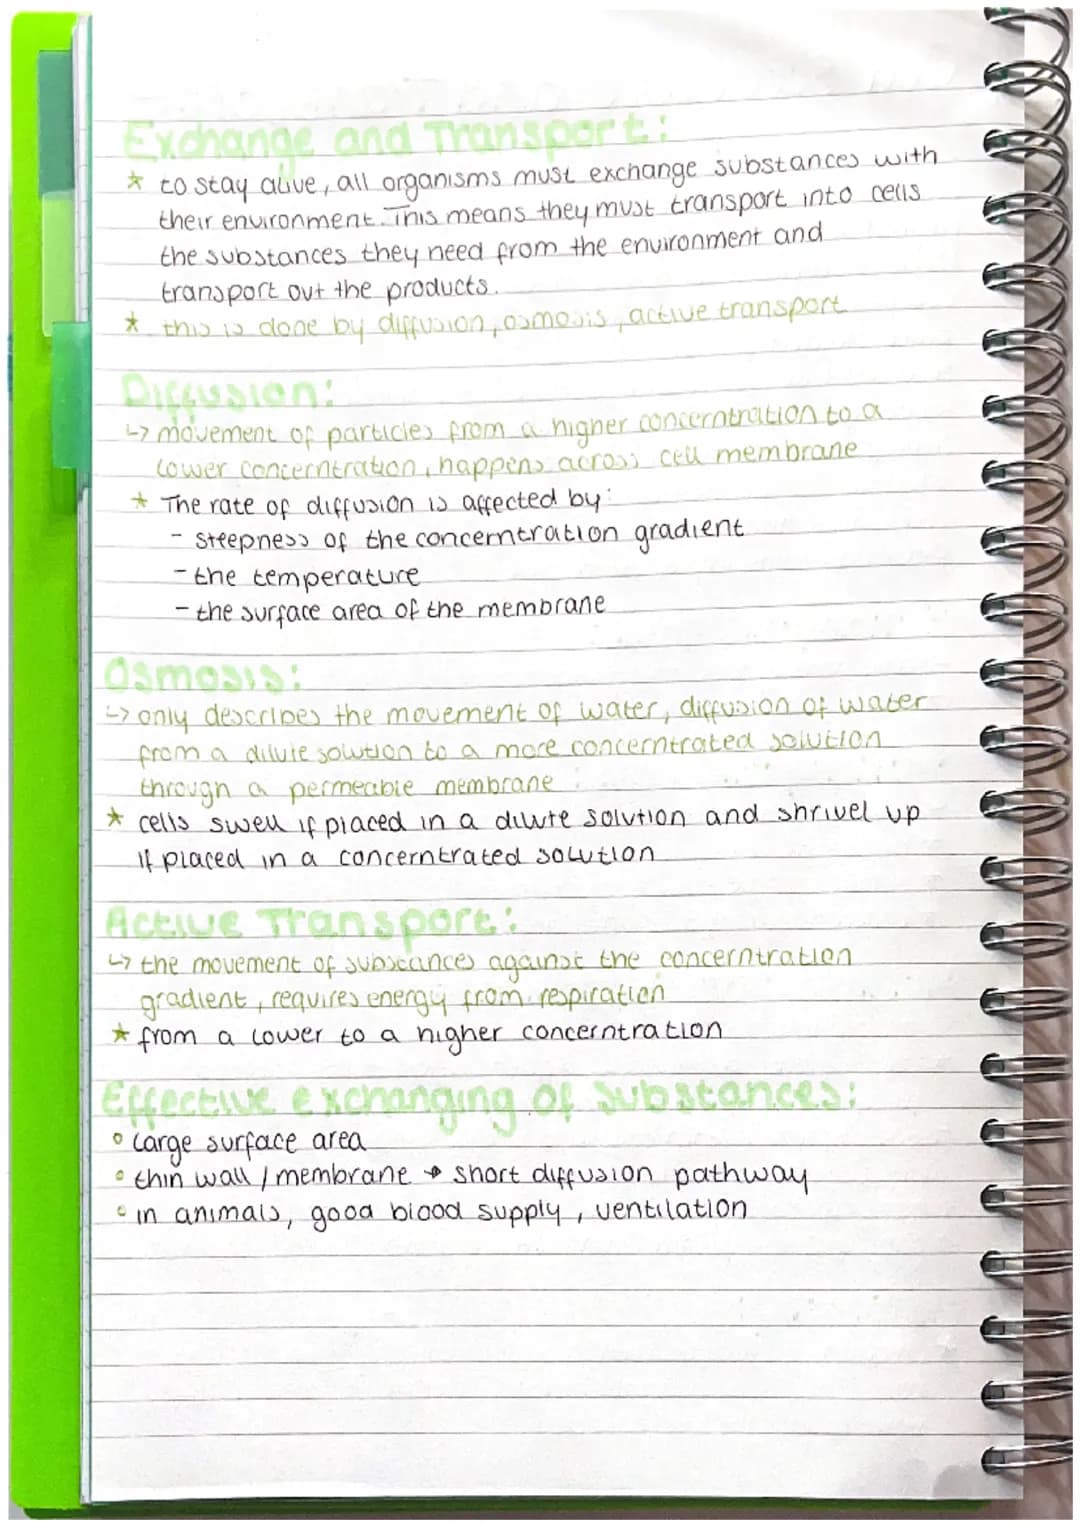 Exchange and Transport:
* to stay alive, all organisms must exchange substances with
their environment. This means they must transport into cells
the substances they need from the environment and
transport out the products.
* this is done by diffusion, osmosis, active transport
Diffusion:
↳ movement of particles from a higher concerntration to a
lower concerntration, happens across cell membrane
* The rate of diffusion is affected by:
- steepness of the concerntration gradient
- the temperature
- the surface area of the membrane
Osmosis:
↳ only describes the movement of water, diffusion of water
from a dilute solution to a more concerntrated solution
through a permeable membrane
* cells swell if placed in a dilute solution and shrivel up
if placed in a concerntrated solution
Active Transport:
↳ the movement of substances against the concerntration
gradient, requires energy from respiration
* from a lower to a higher concerntration
Effective exchanging of substances:
° large surface area
° thin wall / membrane → short diffusion pathway
° in animals, good blood supply, ventilation